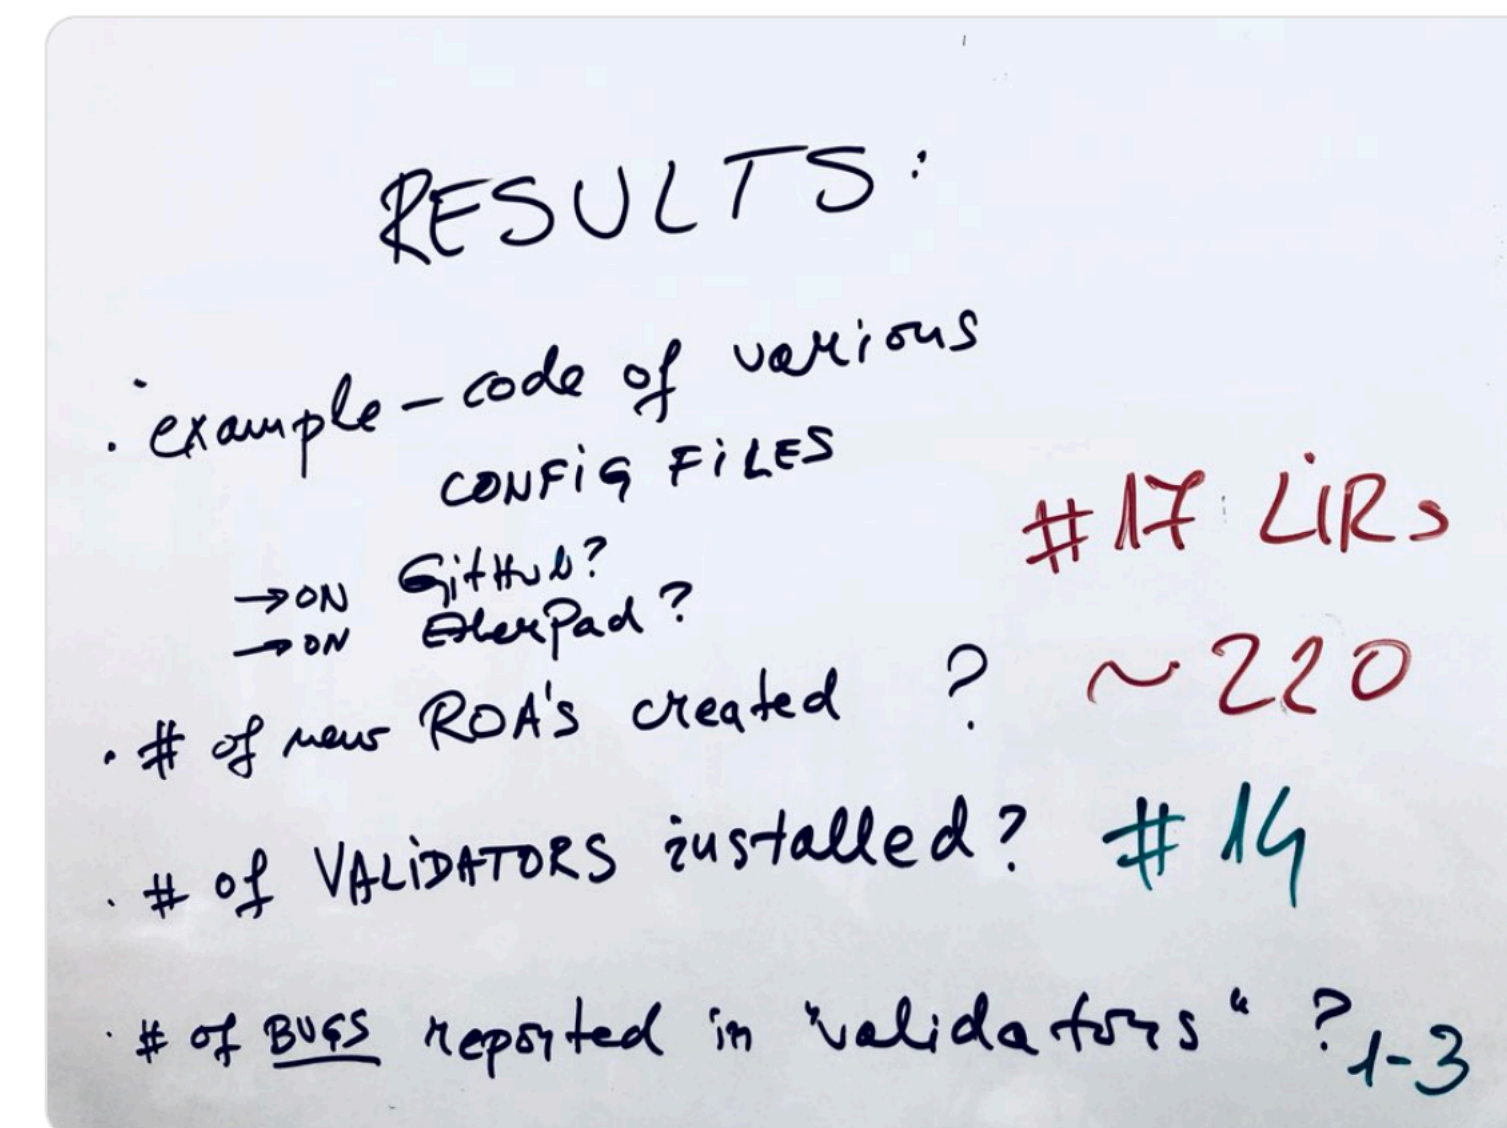 RESULTS:
· example - code of various
CONFiG FiLES
#17 LiRs
→ ON GitHub?
→ ON EtherPad?
· # of new ROA's created ? ~220
· # of VALiDATORS installed? #14
· # of BUGS reported in "validators" ? 1-3